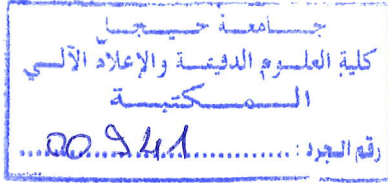 جامعة جيجل
كلية العلوم الدقيقة والإعلام الآلي
المكتبة
رقم الجرد : 00941